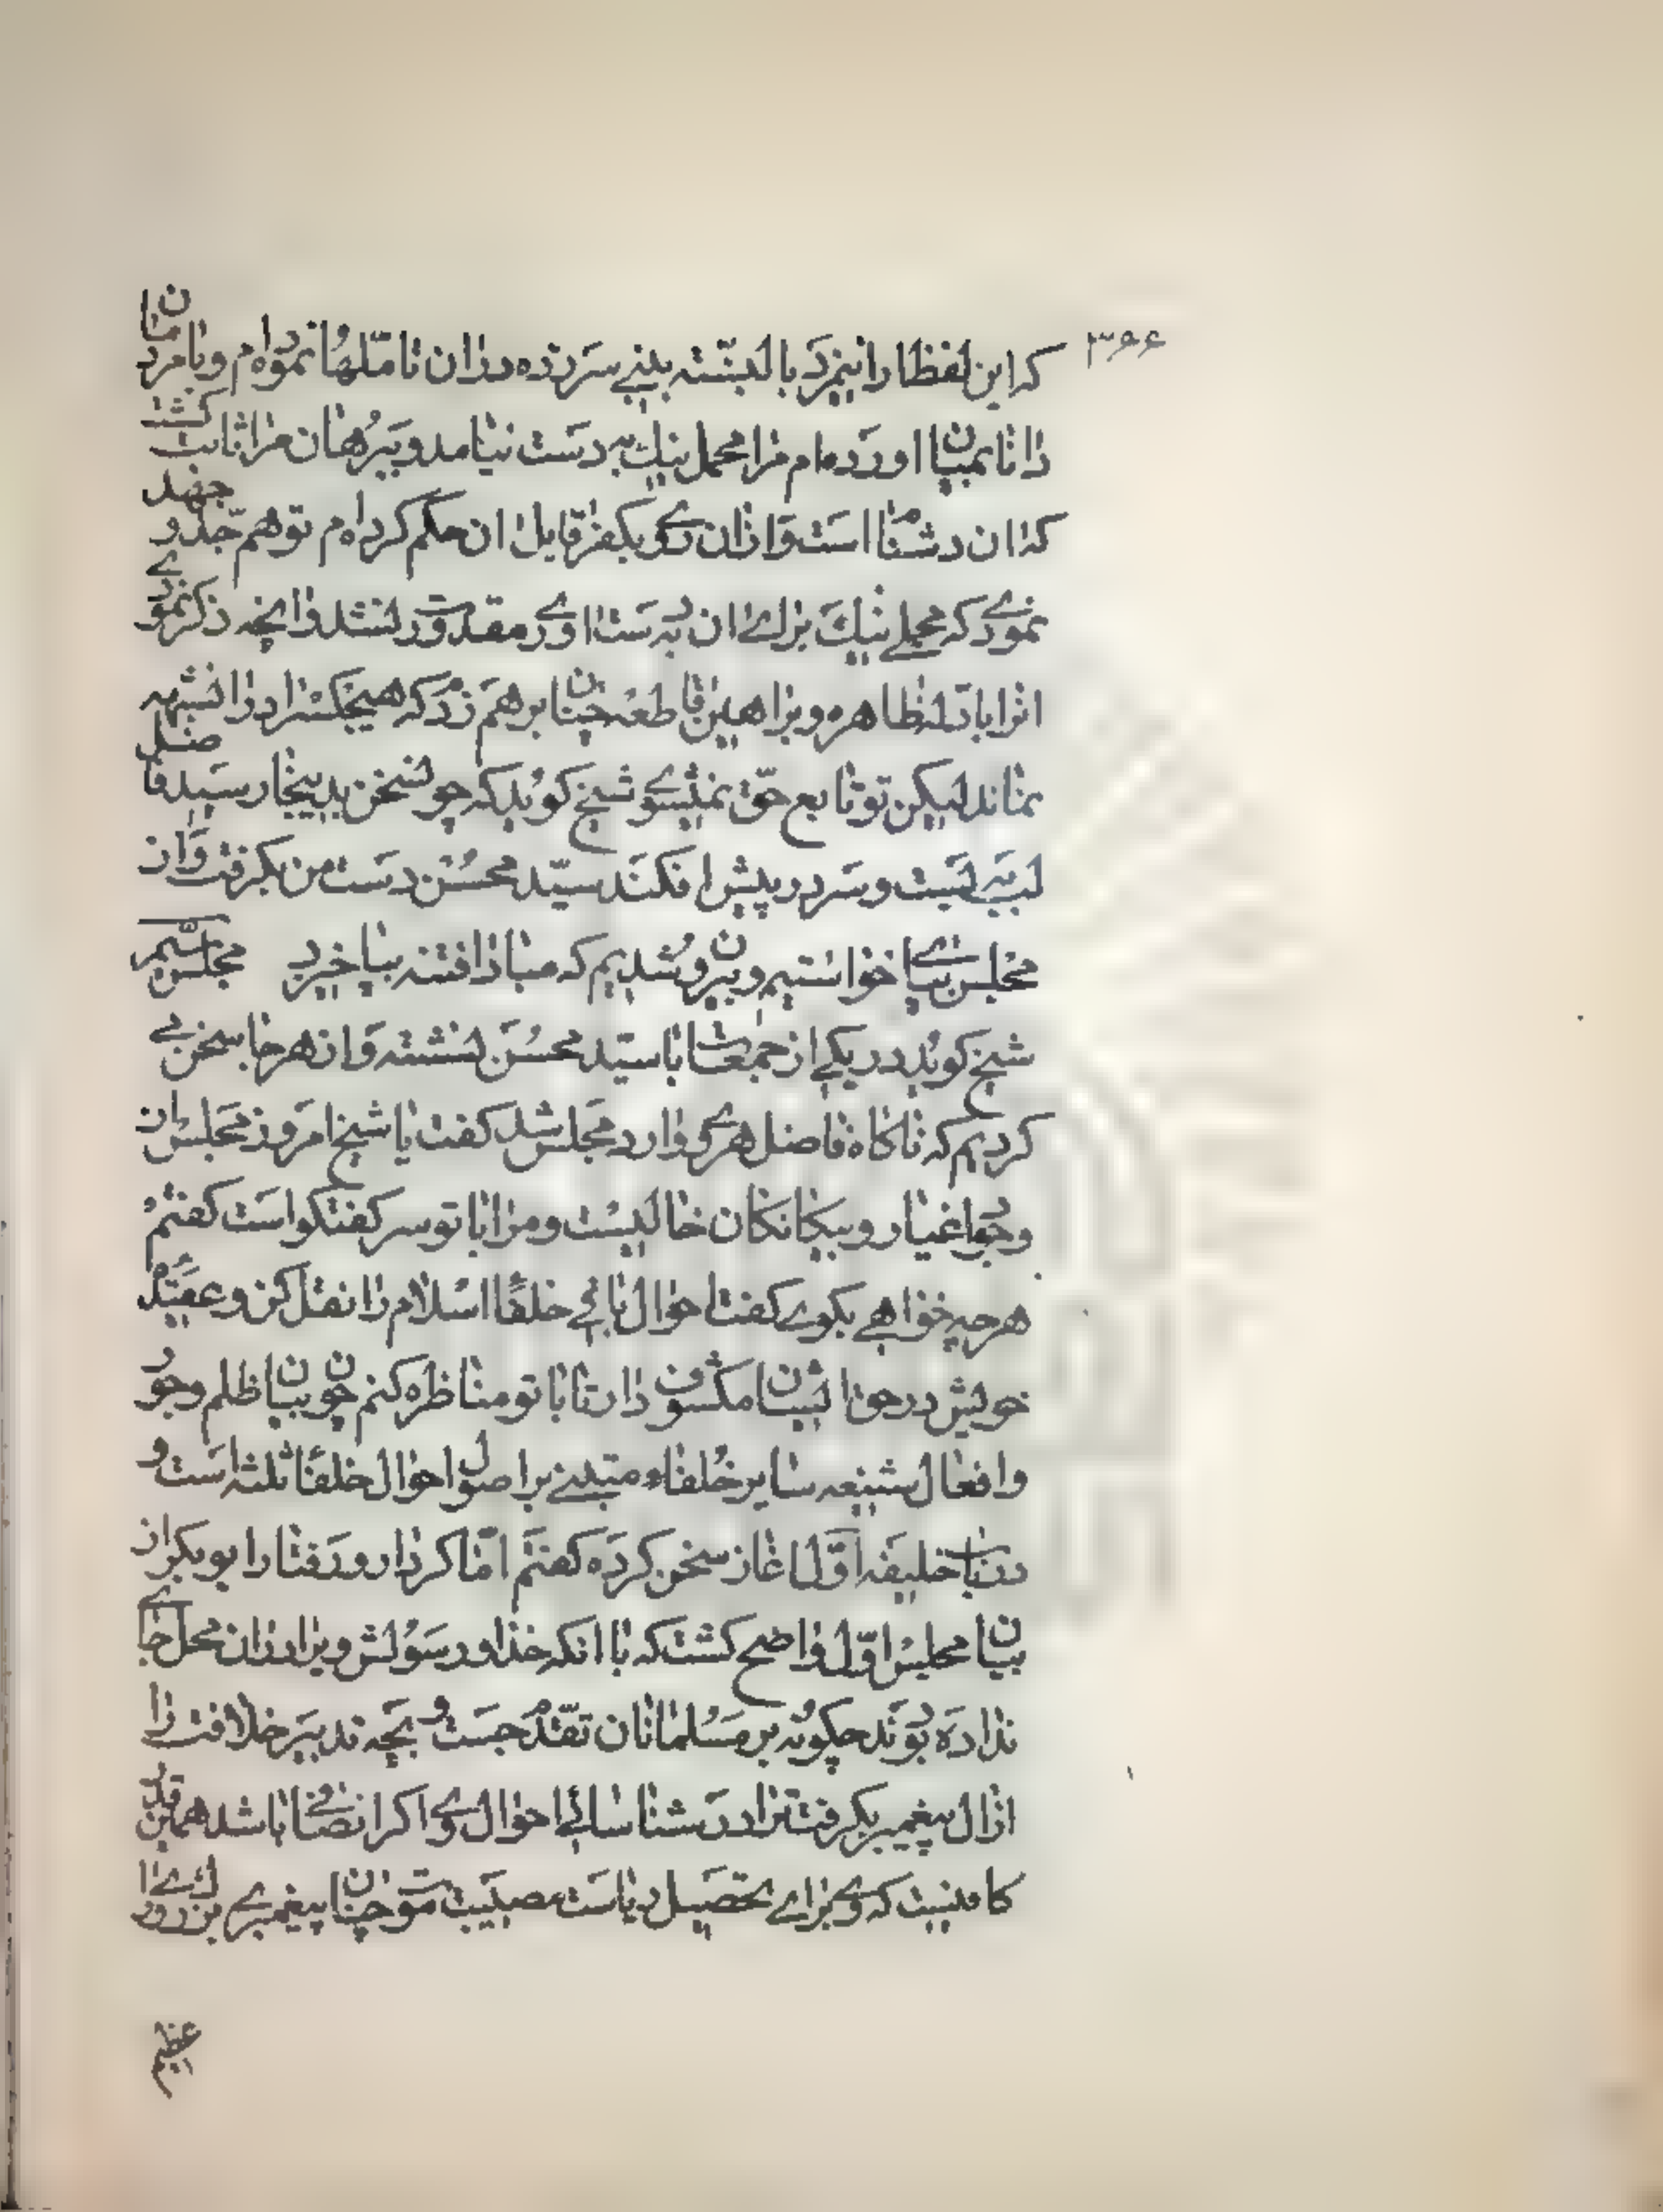 ۳۶۶
که این لفظ را نیز بالبته سر زده در ان تاملها نموده‌ام و با مردمان
دانا بمیان اورده‌ام مرا محمل نیک به دست نیامد و ببرهان مرا ثابت کشت
که ان دشنام است و از ان روی بکفر قایل ان حکم کرده‌ام تو هم جد و جهد
نمودی که محملی نیک برای ان به دست اوری مقدورت نشد و انچه ذکر نمودی
انرا بادله ظاهره و براهین قاطعه چنان بر هم زدم که هیچکس را در ان شبهه
نماند لیکن تو تابع حق نمیشوی شیخ کوید که چون سخن بدینجا رسید فاضل
لب به بست و سر در پیش افکند سید محسن دست من بکرفت و از ان
مجلس بپای خواستیم و بیرون شدیم که مبادا فتنه بپا خیزد مجلس سیم
شیخ کوید در یکی از جمعات با سید محسن نشسته و از هر جا سخن می
کردیم که ناکاه فاضل هروی وارد مجلس شد کفت یا شیخ امروز مجلس از
وجود اغیار و بیکانکان خالیست و مرا با تو سر کفتکو است کفتم
هر چه خواهی بکوی کفت احوال باقی خلفا اسلام را نقل کن و عقیده
خویش در حق ایشان مکشوف دار تا با تو مناظره کنم چون بیان ظلم و جور
و افعال شنیعه سایر خلفاء مبتنی بر اصول احوال خلفا ثلثه است و
در باب خلیفه اول اغاز سخن کرده کفتم اما کردار و رفتار ابو بکر از
بیان مجلس اول واضح کشت که با انکه خدا و رسولش ویرا در ان محل جای
نداده بودند چکونه بر مسلمانان تقدم جست و بچه تدبیر خلافت را
از ال پیغمبر بکرفت ترا در شناسائی احوال وی اکر انصافی باشد همین قدر
کافیست که وی برای تحصیل ریاست مصیبت موت چنان پیغمبری بزرکوار را
عظیم